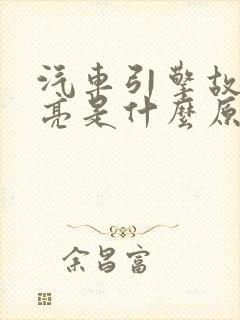 汽車引擎故
亮是什麼原
余昌富